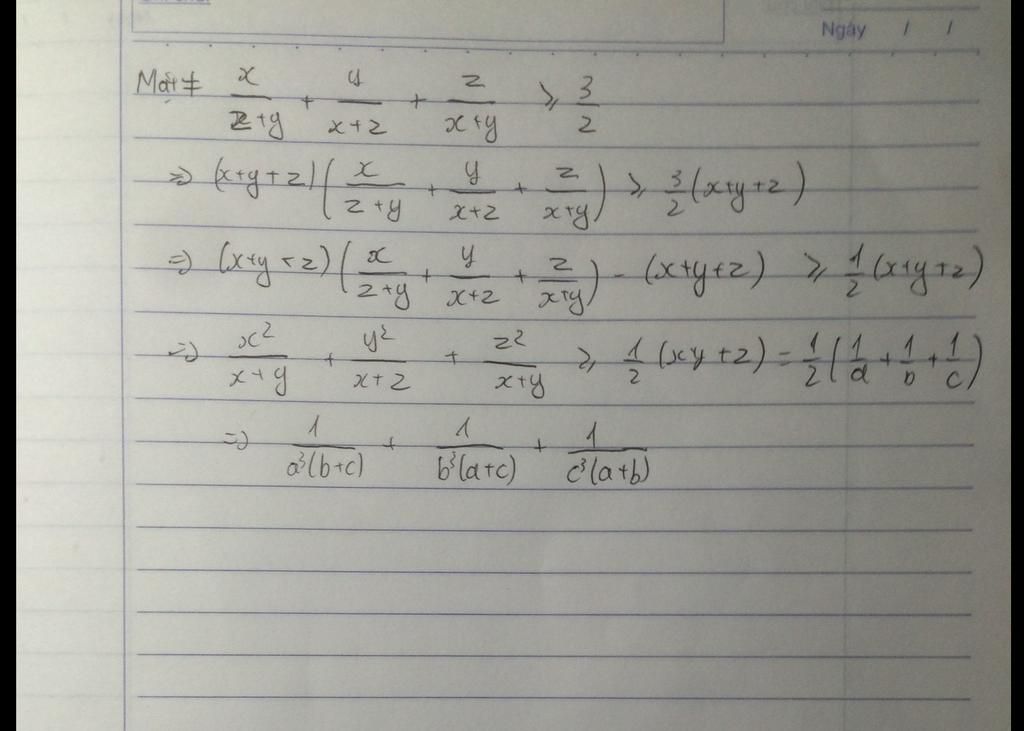 Ngày / /
Mặt ≠ x/(z+y) + y/(x+z) + z/(x+y) ⩾ 3/2
=> (x+y+z)(x/(z+y) + y/(x+z) + z/(x+y)) ⩾ 3/2(x+y+z)
=> (x+y+z)(x/(z+y) + y/(x+z) + z/(x+y)) - (x+y+z) ⩾ 1/2(x+y+z)
=> x²/(x+y) + y²/(x+z) + z²/(x+y) ⩾ 1/2(xy+z) = 1/2(1/a + 1/b + 1/c)
=> 1/(a³(b+c)) + 1/(b³(a+c)) + 1/(c³(a+b))